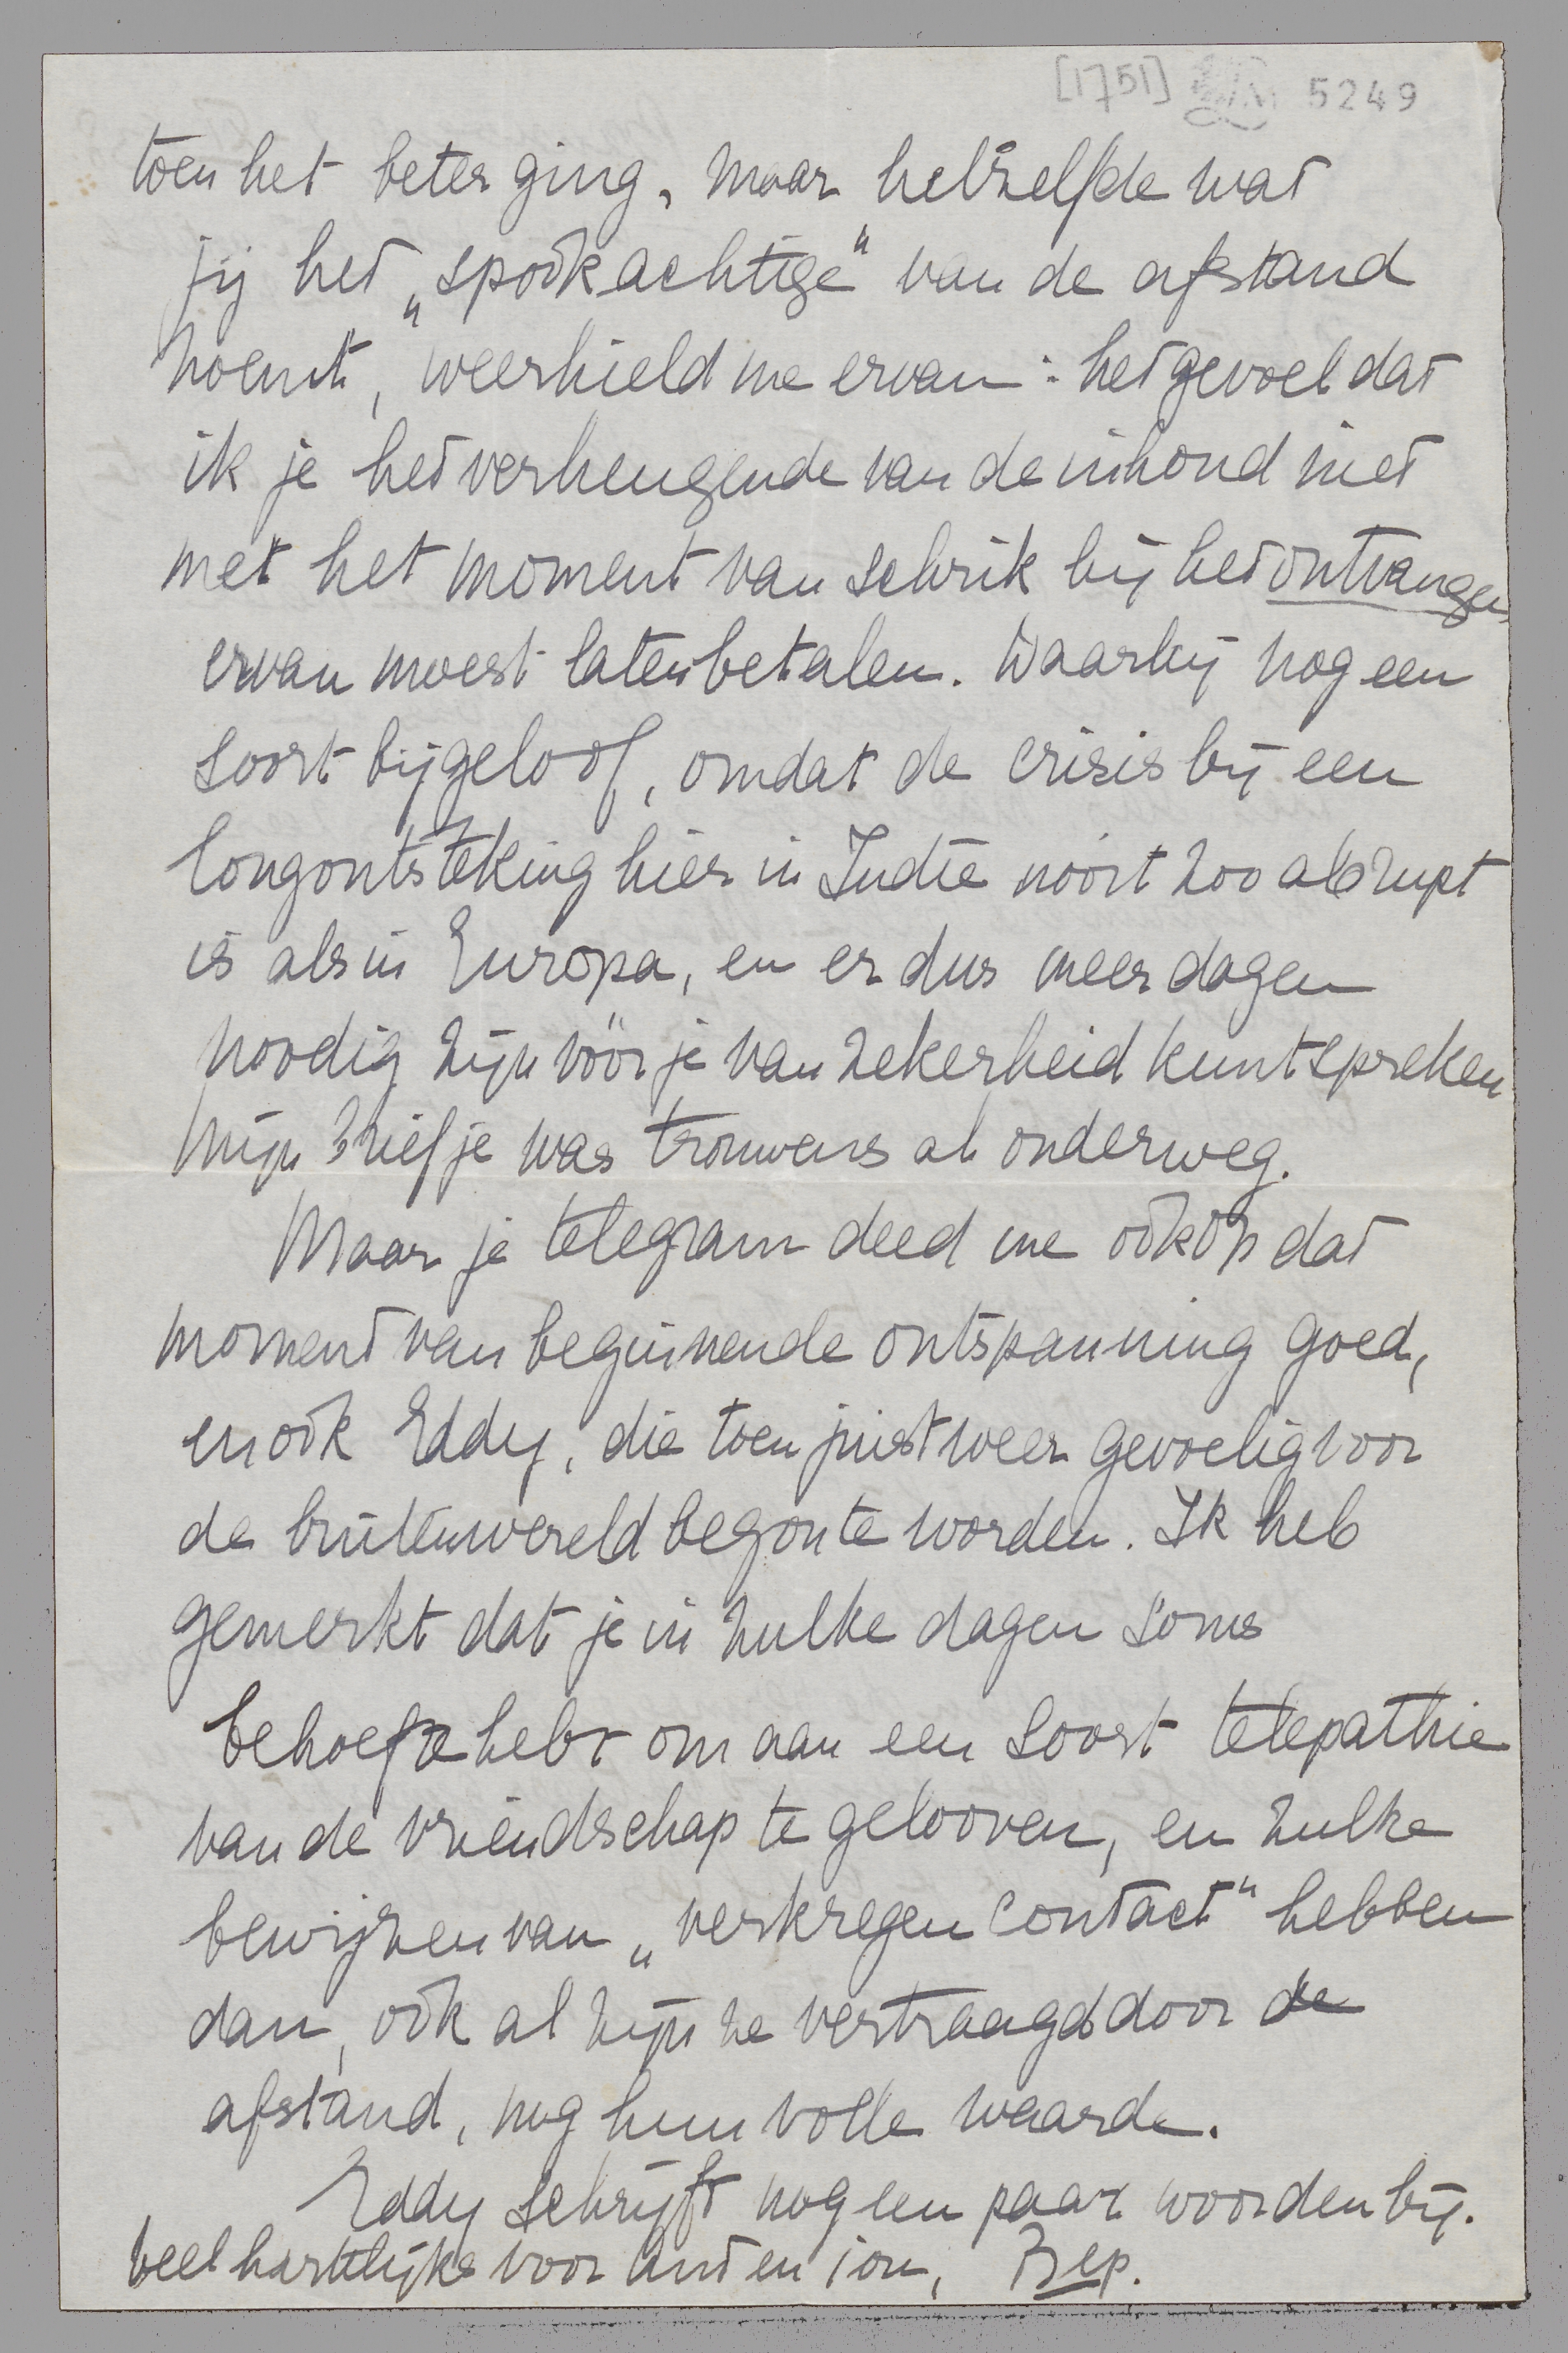 [1751] 5249
toen het beter ging, maar hetzelfde wat
jij het „spookachtige" van de afstand
noemt, weerhield me ervan: het gevoel dat
ik je het verheugende van de inhoud niet
met het moment van schrik bij het ontvangen
ervan moest laten betalen. Waarbij nog een
soort bijgeloof, omdat de crisis bij een
longontsteking hier in Indië nooit zoo abrupt
is als in Europa, en er dus meer dagen
noodig zijn vóór je van zekerheid kunt spreken
Mijn briefje was trouwens al onderweg.
Maar je telegram deed me ook op dat
moment van beginnende ontspanning goed,
en ook Eddy, die toen juist weer gevoelig voor
de buitenwereld begon te worden. Ik heb
gemerkt dat je in zulke dagen soms
behoefte hebt om aan een soort telepathie
van de vriendschap te gelooven, en zulke
bewijzen van „verkregen contact" hebben
dan, ook al zijn ze vertraagd door de
afstand, nog hun volle waarde.
Eddy schrijft nog een paar woorden bij.
Veel hartelijks voor Ant en jou, Bep.